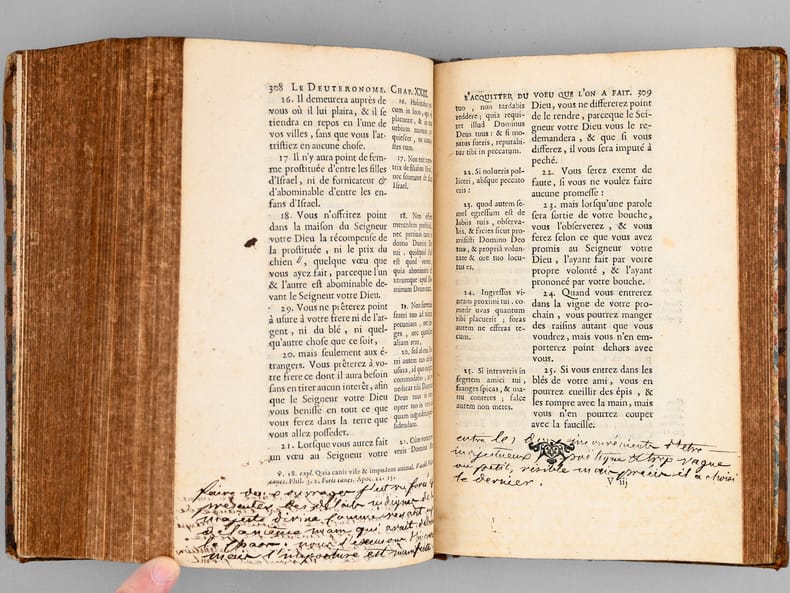 308 LE DEUTERONOME. CHAP. XXIII.
16. Il demeurera auprès de
vous où il lui plaira, & il se
tiendra en repos en l'une de
vos villes, sans que vous l'at-
tristiez en aucune chose.
17 Il n'y aura point de fem-
me prostituée d'entre les filles
d'Israel, ni de fornicateur &
d'abominable d'entre les en-
fans d'Israel.
18. Vous n'offrirez point
dans la maison du Seigneur
votre Dieu la récompense de
la prostituée, ni le prix du
chien, quelque vœu que
vous ayez fait, parceque l'un
& l'autre est abominable de-
vant le Seigneur votre Dieu.
29. Vous ne prêterez point
à usure à votre frere ni de l'ar-
gent, ni du blé, ni quel-
qu'autre chose que ce soit,
20. mais seulement aux é-
trangers. Vous prêterez à vo-
tre frere ce dont il aura besoin
sans en tirer aucun interêt, afin
que le Seigneur votre Dieu
vous benisse en tout ce que
vous ferez dans la terre que
vous allez posseder.
21. Lorsque vous aurez fait
un vœu au Seigneur votre
16. Habitabit
cum in loco, qui
placuerit, & in
urbium tuarum
quiescet, ne con-
tristes eum.
17. Non erit
trix de filiabus Isr
nec scortator de
Israel.
18. Non offer
mercedem prostibuli
nec pretium canis
domo Domini
tui, quidquid
est quod vover
quia abominatio
utrumque apud
minum Deum tuum
19. Non fœnera
fratri tuo ad usur
pecuniam, nec
ges, nec quamlibet
aliam rem,
20. sed alieno
tri autem tuo
usura, id quo
commodabis,
nedicat tibi Dominus
Deus tuus in
opere tuo in
quam ingredieris
sidendam.
21. Cùm
veris Domino
℣. 18. expl. Quia canis vile & impudens animal.
canes. Phil. 3. 2. Foris canes. Apoc. 22. 15.
faire du
presenter
majesté divine comme
mais l'imposture est
S'ACQUITTER DU VOEU QUE L'ON A FAIT. 309
tuo, non tardabis
reddere; quia requi-
ret illud Dominus
Deus tuus: & si mo-
ratus fueris, reputabi-
tur tibi in peccatum.
22. Si nolueris pol-
liceri, absque peccato
eris:
23. quod autem se-
mel egressum est de
labiis tuis, observa-
bis, & facies sicut pro-
misisti Domino Deo
tuo, & propriâ volun-
tate & ore tuo locu-
tus es.
24. Ingressus vi-
neam proximi tui, co-
mede uvas quantum
tibi placuerit; foras
autem ne efferas te-
cum.
25. Si intraveris in
segetem amici tui,
franges spicas, & ma-
nu conteres; falce
autem non metes.
Dieu, vous ne differerez point
de le rendre, parceque le Sei-
gneur votre Dieu vous le re-
demandera, & que si vous
differez, il vous sera imputé à
peché.
22. Vous serez exemt de
faute, si vous ne voulez faire
aucune promesse:
23. mais lorsqu'une parole
sera sortie de votre bouche,
vous l'observerez, & vous
ferez selon ce que vous avez
promis au Seigneur votre
Dieu, l'ayant fait par votre
propre volonté, & l'ayant
prononcé par votre bouche.
24. Quand vous entrerez
dans la vigne de votre pro-
chain, vous pourrez manger
des raisins autant que vous
voudrez, mais vous n'en em-
porterez point dehors avec
vous.
25. Si vous entrez dans les
blés de votre ami, vous en
pourrez cueillir des épis, &
les rompre avec la main, mais
vous n'en pourrez couper
avec la faucille.
entre les deux inconvénients d'etre
trop vague
ou petit, risible mais précis il a choisi
le dernier.
V iij